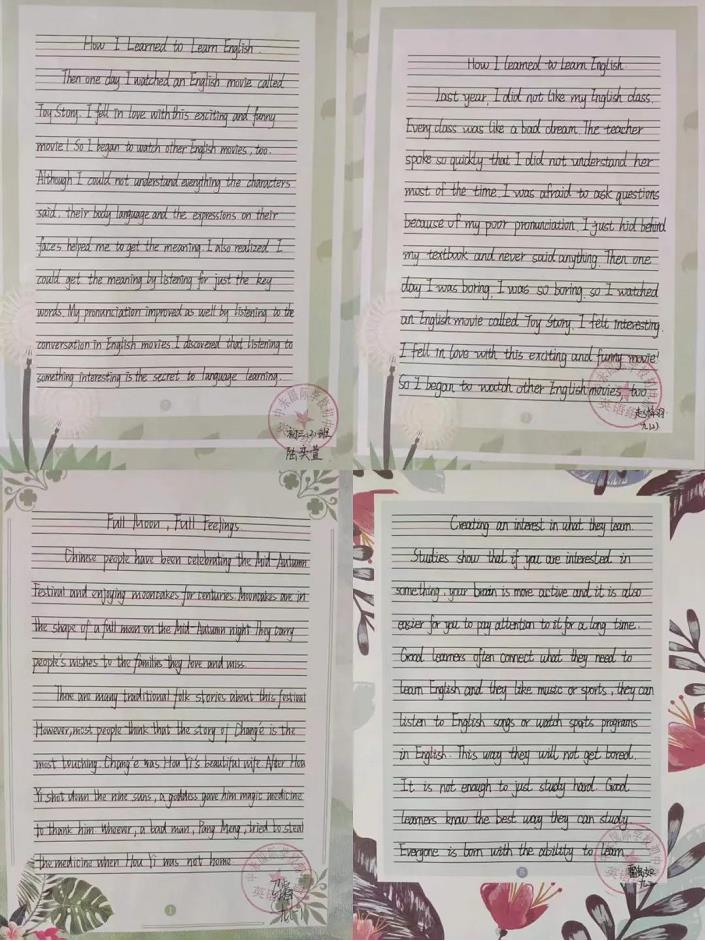 How I Learned to Learn English.
Then one day I watched an English movie called
Toy Story. I fell in love with this exciting and funny
movie! So I began to watch other English movies, too.
Although I could not understand everything the characters
said, their body language and the expressions on their
faces helped me to get the meaning. I also realized I
could get the meaning by listening for just the key
words. My pronunciation improved as well by listening to the
conversation in English movies. I discovered that listening to
something interesting is the secret to language learning.
初三(3)班
How I learned to Learn English
Last year, I did not like my English class.
Every class was like a bad dream. The teacher
spoke so quickly that I did not understand her
most of the time. I was afraid to ask questions
because of my poor pronunciation. I just hid behind
my textbook and never said anything. Then one
day I was boring, I was so boring, so I watched
an English movie called Toy Story. I felt interesting.
I fell in love with this exciting and funny movie!
So I began to watch other English movies, too
Full Moon, Full Feelings
Chinese people have been celebrating the Mid-Autumn
Festival and enjoying mooncakes for centuries. Mooncakes are in
the shape of a full moon on the Mid-Autumn night. They carry
people's wishes to the families they love and miss.
There are many traditional folk stories about this festival
However, most people think that the story of Chang'e is the
most touching. Chang'e was Hou Yi's beautiful wife. After Hou
Yi shot down the nine suns, a goddess gave him magic medicine
to thank him. a bad man, Pang Meng, tried to steal
the medicine when Hou Yi was not home
Creating an interest in what they learn.
Studies show that if you are interested in
something, your brain is more active and it is also
easier for you to pay attention to it for a long time.
Good learners often connect what they need to
learn English and they like music or sports, they can
listen to English songs or watch sports programs
in English. This way they will not get bored.
It is not enough to just study hard. Good
learners know the best way they can study.
Everyone is born with the ability to learn.